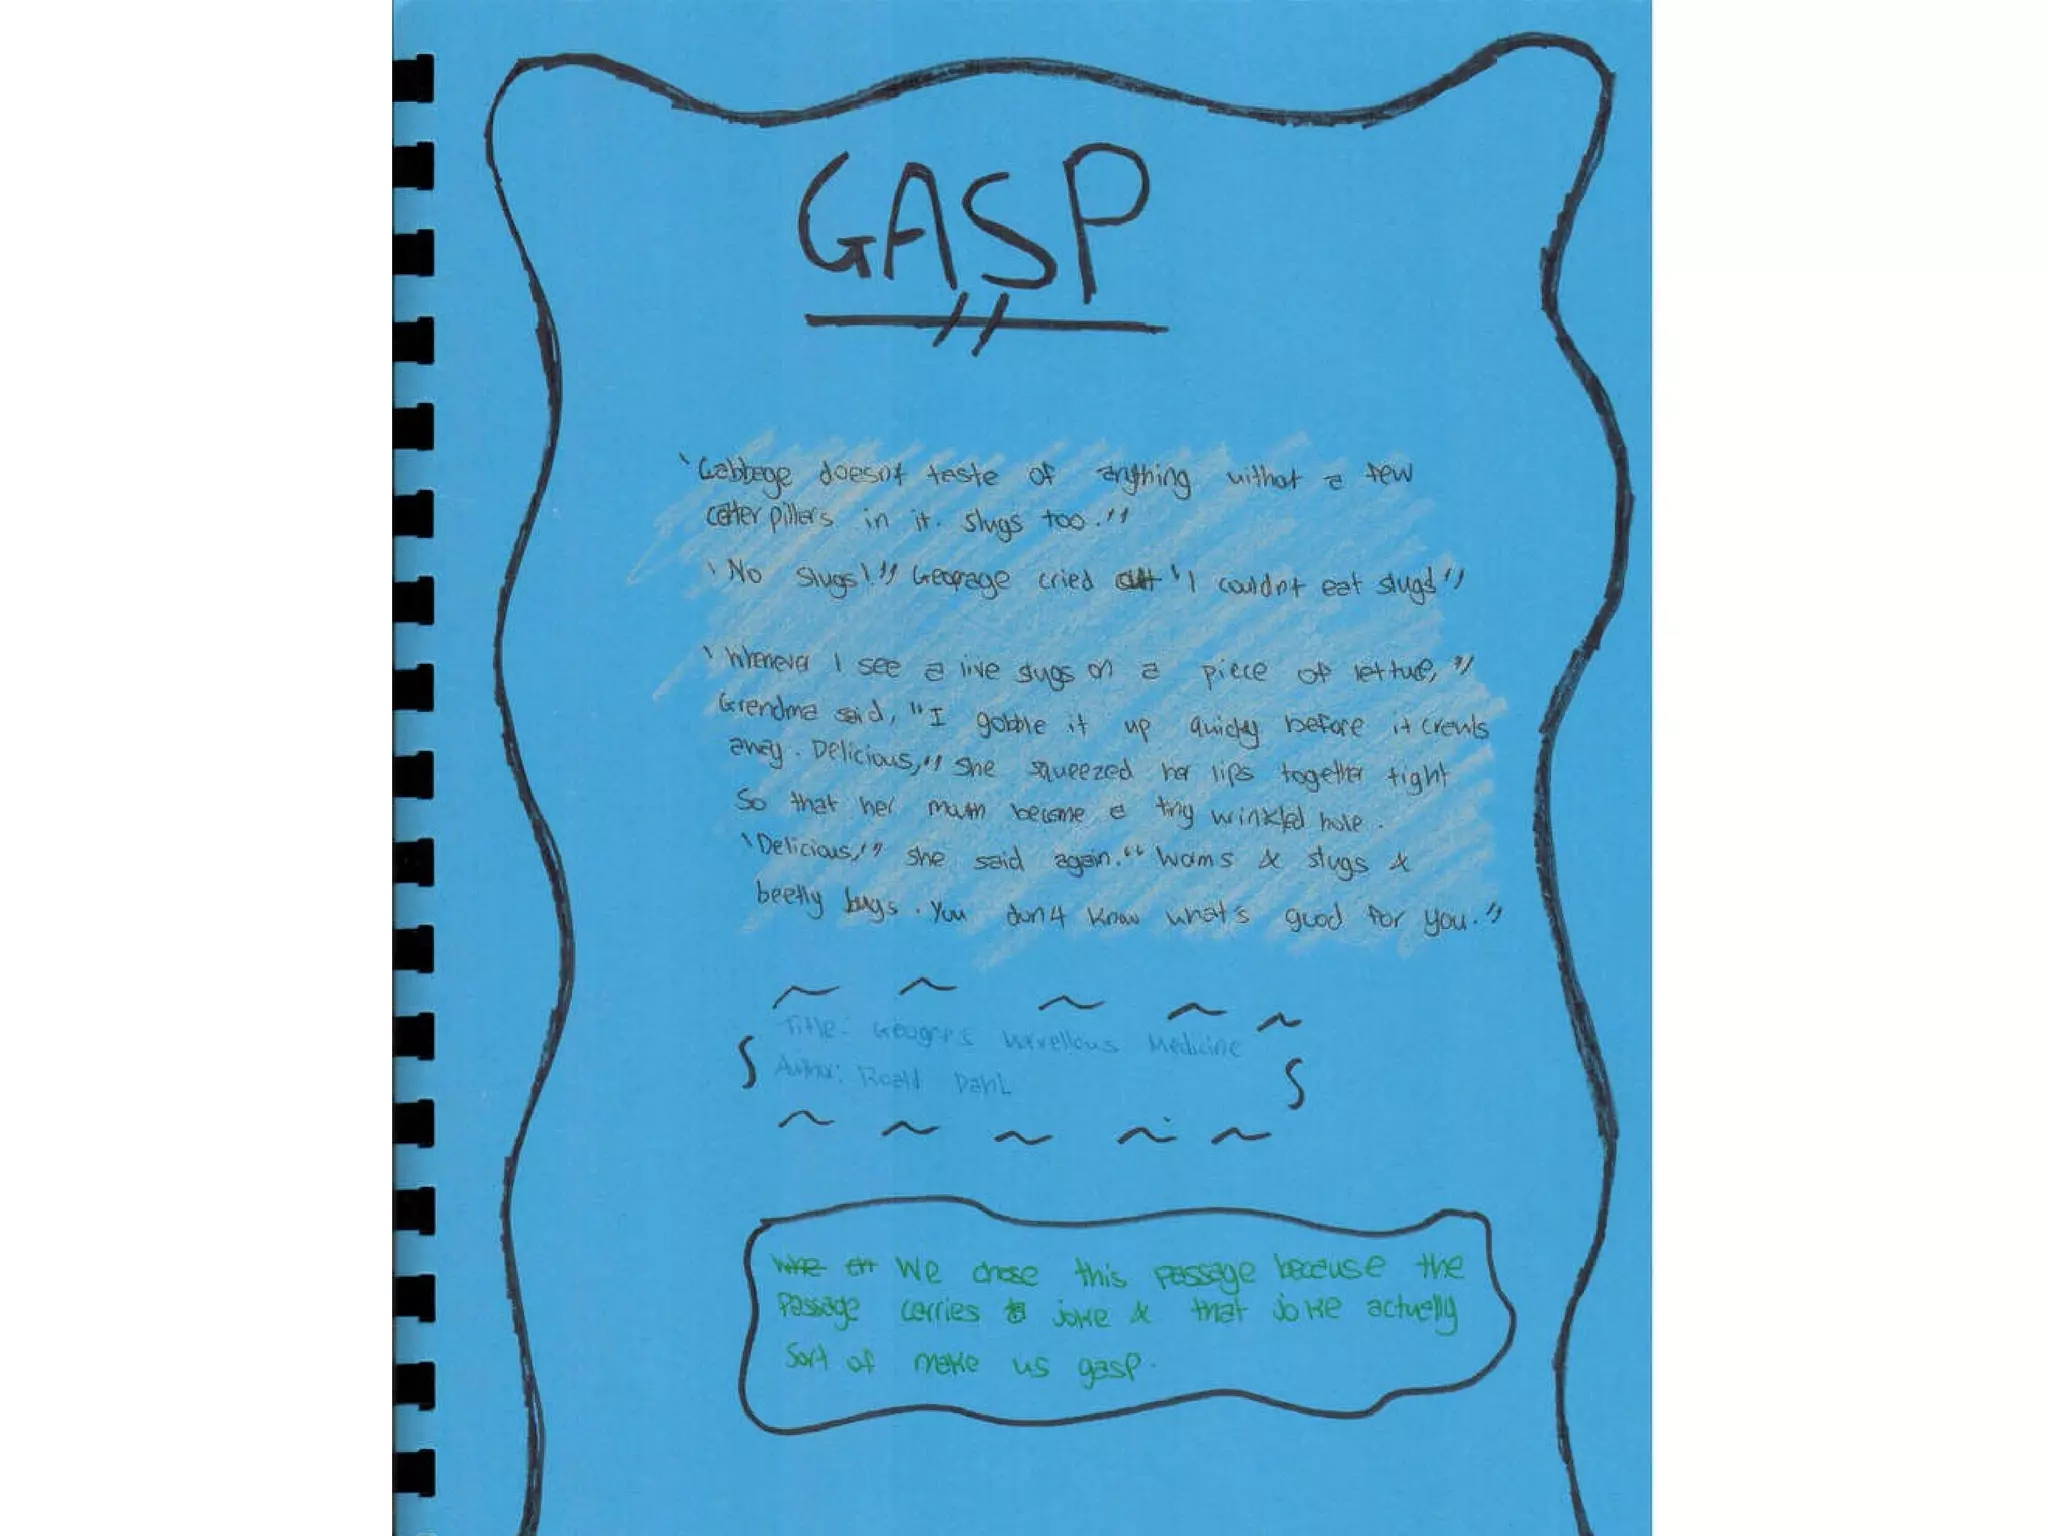 GASP
'Cabbage doesn't taste of anything without a few
caterpillars in it. Slugs too."
'No slugs!" George cried out "I couldn't eat slugs"
'Whenever I see a live slugs on a piece of lettuce,"
Grandma said, "I gobble it up quickly before it crawls
away. Delicious," she squeezed her lips together tight
So that her mouth became a tiny wrinkled hole.
'Delicious," she said again." Worms & slugs &
beetly bugs. You don't know what's good for you."
Title: George's Marvellous Medicine
Author: Roald Dahl
We chose this passage because the
passage carries a joke & that joke actually
Sort of make us gasp.